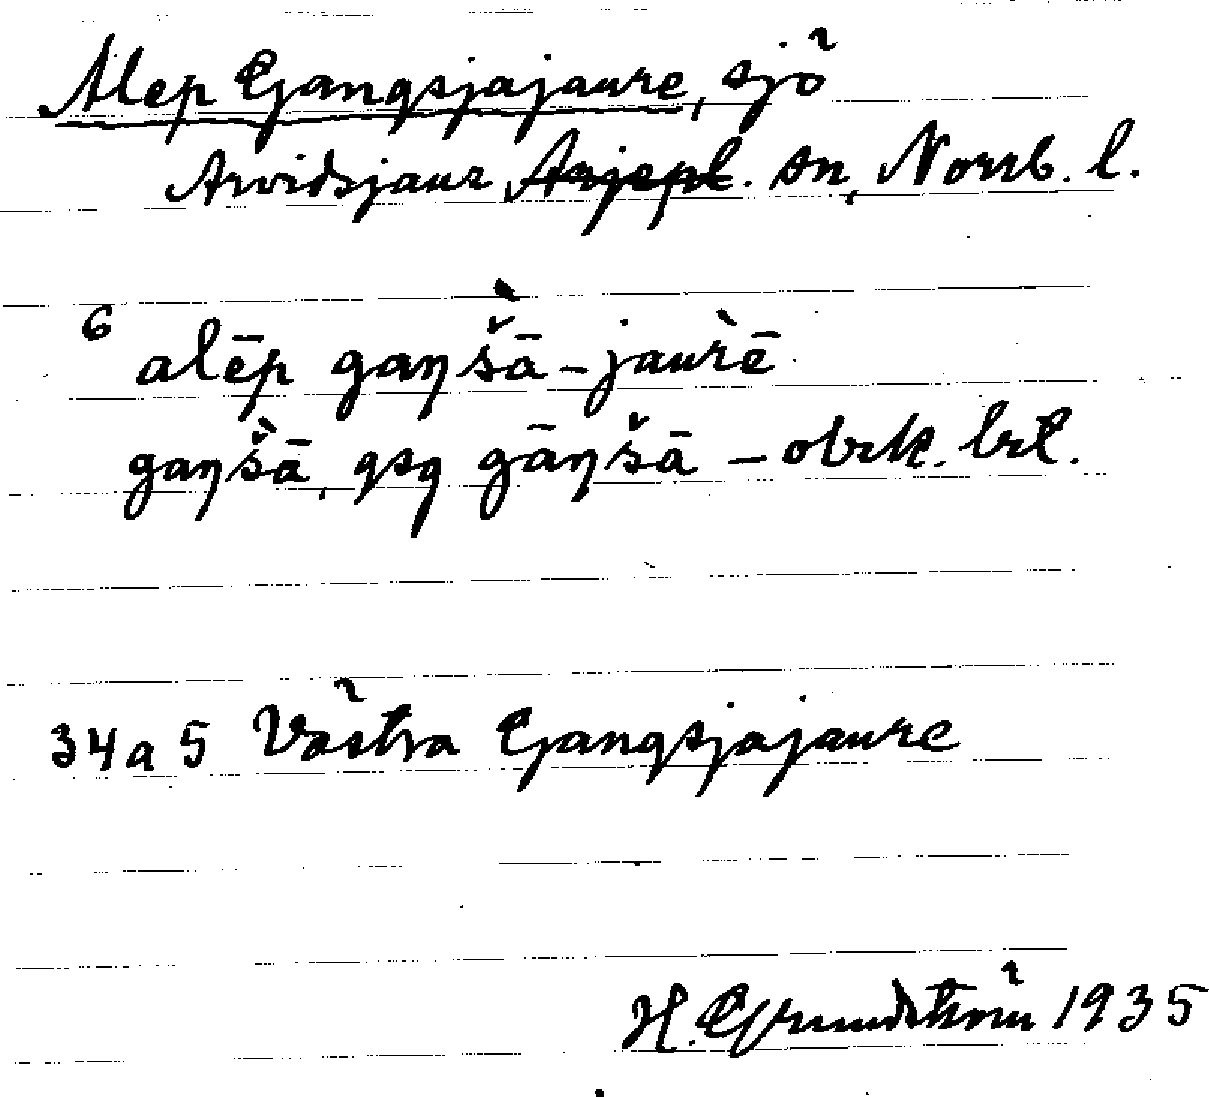 Alep Gangsjajaure, sjö
Arvidsjaur ~~Arjepl.~~ sn, Norrb. l.
6 alēp gaŋš̀ā-jaur̀ē
gaŋš̀ā, gsg gāŋšā – obek. bet.
34a5 Västra Gangsjajaure
H. Grundström 1935